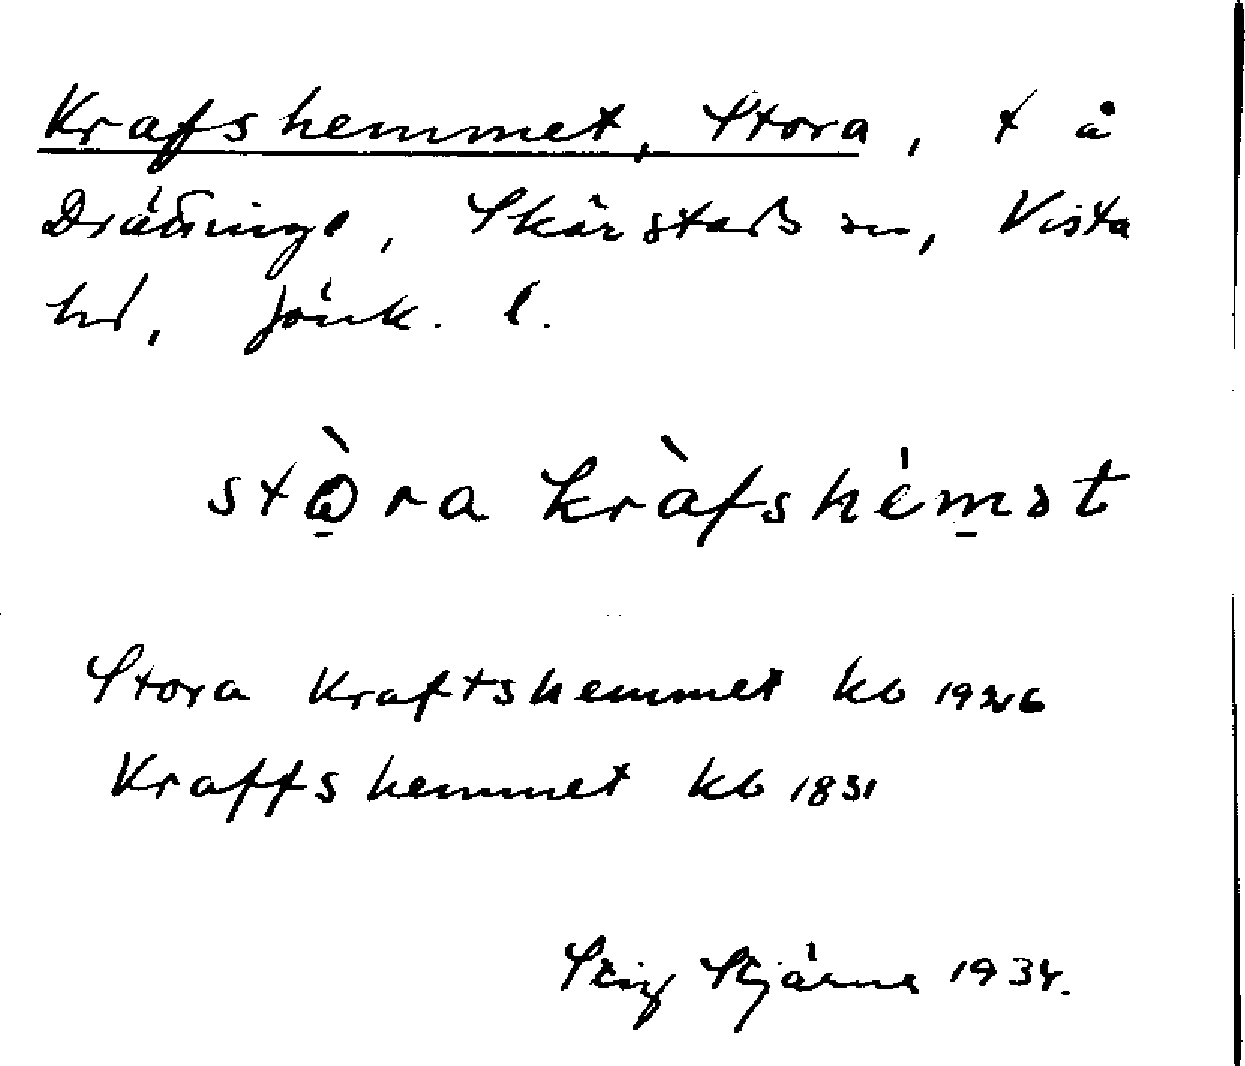 Krafshemmet, Stora, t å
Drättinge, Skärstads sn, Vista
hd, Jönk. l.
stò̠ra kràfshém̠ət
Stora Kraftshemmet kb 1926
Kraffshemmet kb 1831
Stig Stjärne 1934.